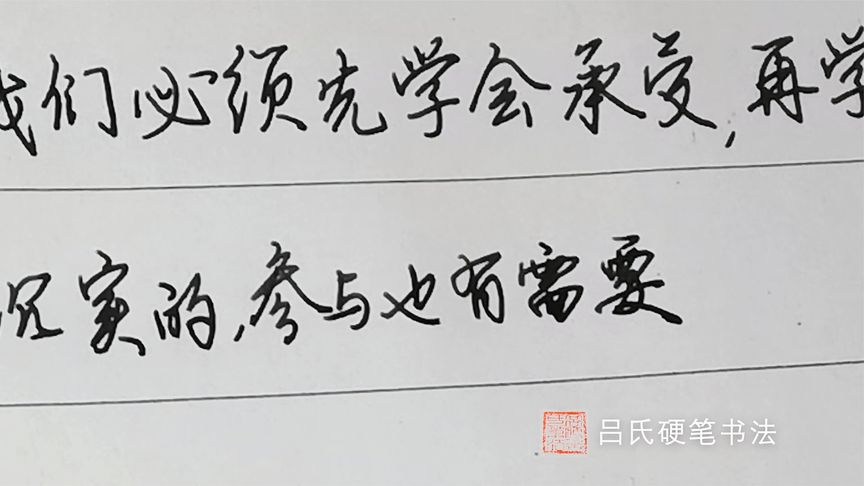 我们必须先学会承受,再学
沉实的,参与也有需要
吕氏硬笔书法